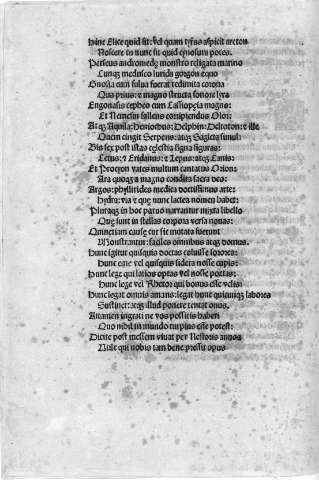 Hinc Elice quid sit: vel quam tyrus aspicit arcton
Noscere tu nunc si quid et possum potes.
Perseus andromedę monstro religata marino
Lunaq; medusęo lurida gorgon equo
Gnosia cum fulua fuerat redimita corona
Qua prius: et magno structa sonore lyra
Engonasis cepheo cum Cassiopeia magno:
Et Nemeum fallens corripiendus Olor:
Atq; Aquila: Heniochus: Delphin: Deltoton: et ille
Quem cingit Serpens: atq; Sagitta simul:
Bis sex post istas cęlestia signa figuras:
Cetus: et Eridanus: et Lepus: atq; Canis:
Et Procyon vates multum cantatus Orion:
Ara quoq; a magno condita sacra deo:
Argos: phyllirides medica doctissimus arte:
Hydra: via et quę nunc lactea nomen habet:
Pluraq; in hoc paruo narrantur mixta libello
Quę sunt in stellas corpora versa nouas:
Quin etiam causę cur sic mutata fuerunt
Monstrantur: faciles omnibus atq; domus.
Hunc igitur quisquis doctas coluisse sorores:
Hunc eme vel quisquis sidera nosse cupis:
Hunc lege qui latios optas vel nosse poetas:
Hunc lege vel Rhetor qui bonus esse velis:
Hunc legat omnis amans: legat hunc quicunq; labores
Sustinet: atq; illud ponere tentat onus.
Attamen ingrati ne vos possitis haberi
Quo nihil in mundo turpius esse potest:
Dicite post messem viuat per Nestoris annos
Utile qui nobis tam bene pressit opus